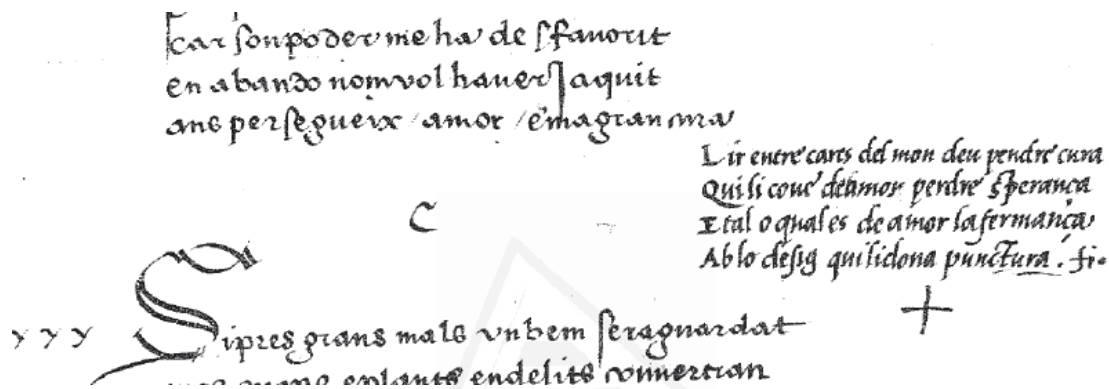 car son poder me ha desfavorit
en abando nom vol haver jaquit
ans persegueix / amor / e ma gran ira
Lir entre carts del mon deu pendre cura
Qui li cove de amor perdre sperança
E tal o qual es de amor la fermança
Ab lo desig qui li dona punctura. fi.
C
+
y y y
Si pres grans mals un bem sera guardat
grans plants en delits convertran